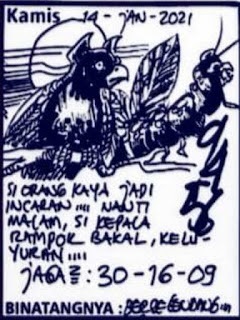 Kamis 14 - JAN - 2021
9456
SI ORANG KAYA JADI
INCARAN .... NANTI
MALAM, SI KEPALA
RAMPOK BAKAL, KELU-
YURAN ....
JAGA2 : 30-16-09
BINATANGNYA :